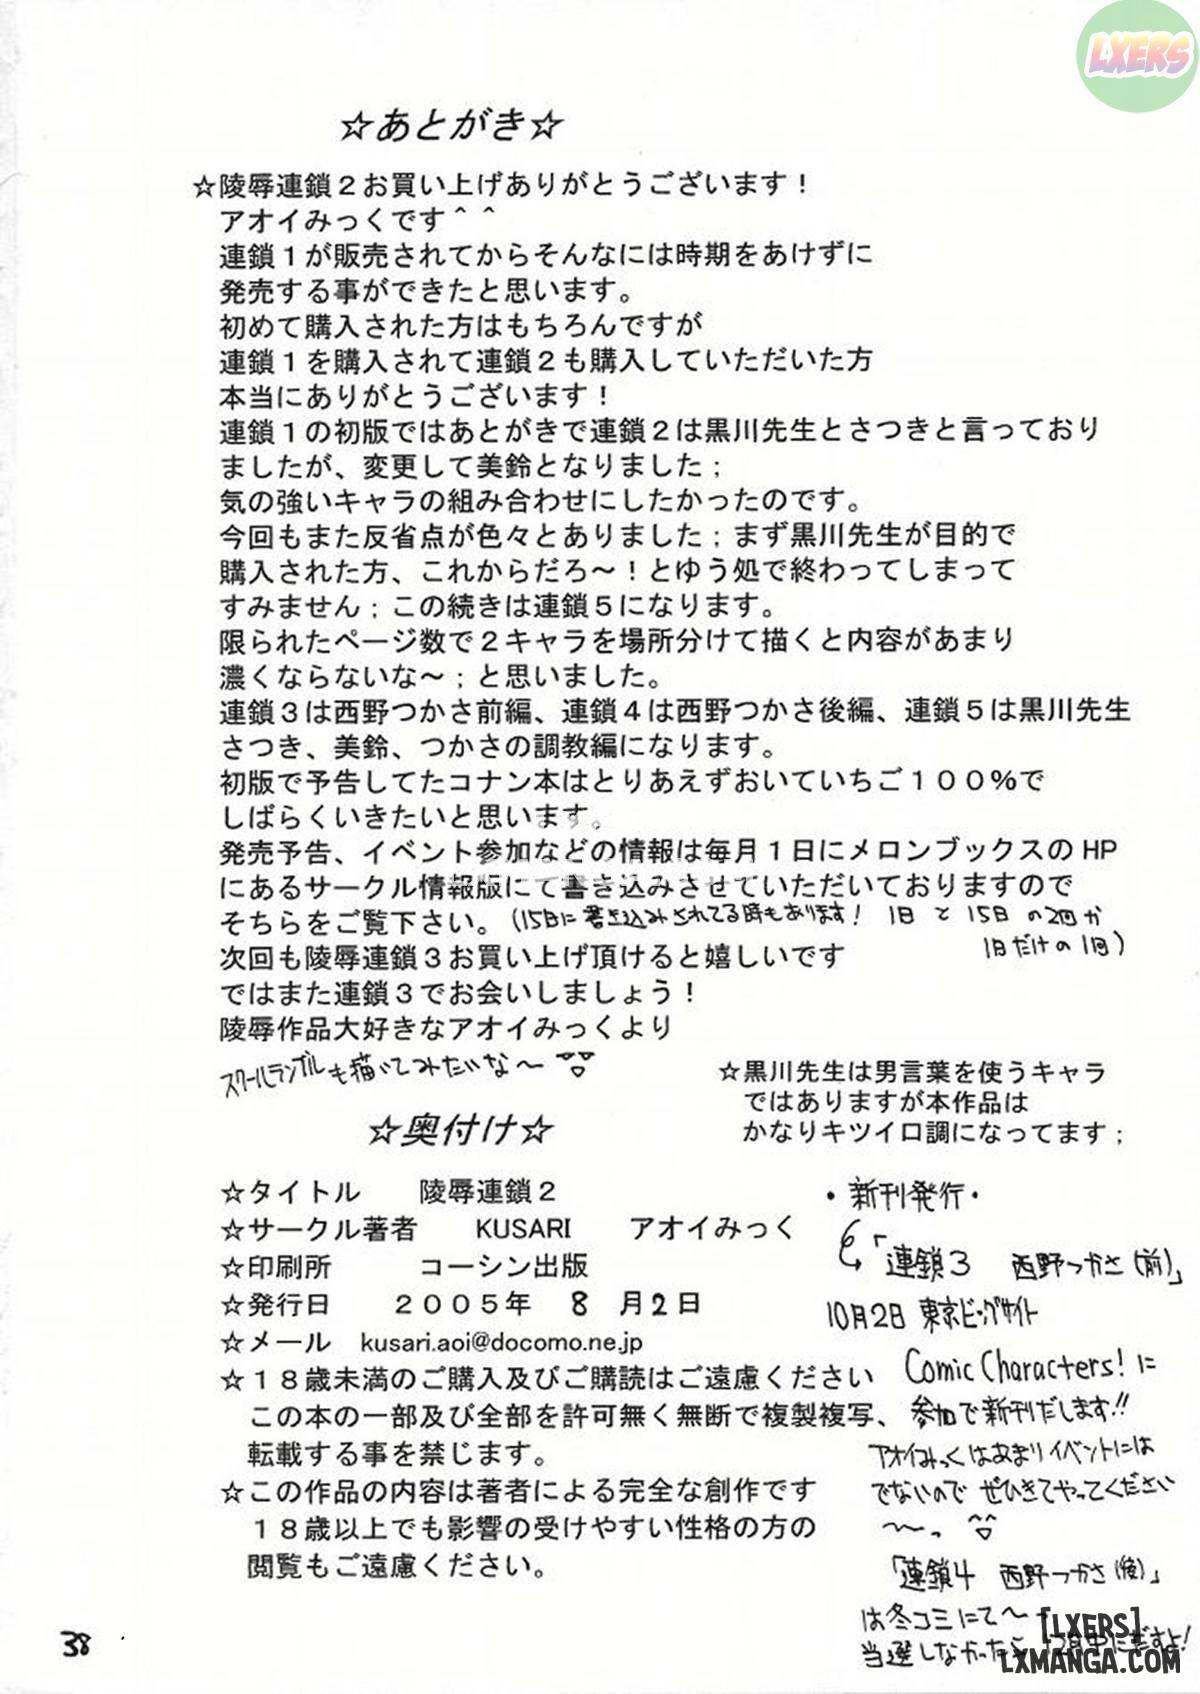 LXERS
☆あとがき☆
☆陵辱連鎖２お買い上げありがとうございます！
アオイみっくです＾＾
連鎖１が販売されてからそんなには時期をあけずに
発売する事ができたと思います。
初めて購入された方はもちろんですが
連鎖１を購入されて連鎖２も購入していただいた方
本当にありがとうございます！
連鎖１の初版ではあとがきで連鎖２は黒川先生とさつきと言っており
ましたが、変更して美鈴となりました；
気の強いキャラの組み合わせにしたかったのです。
今回もまた反省点が色々とありました；まず黒川先生が目的で
購入された方、これからだろ～！とゆう処で終わってしまって
すみません；この続きは連鎖５になります。
限られたページ数で２キャラを場所分けて描くと内容があまり
濃くならないな～；と思いました。
連鎖３は西野つかさ前編、連鎖４は西野つかさ後編、連鎖５は黒川先生
さつき、美鈴、つかさの調教編になります。
初版で予告してたコナン本はとりあえずおいていちご１００％で
しばらくいきたいと思います。
発売予告、イベント参加などの情報は毎月１日にメロンブックスのHP
にあるサークル情報版にて書き込みさせていただいておりますので
そちらをご覧下さい。(15日に書き込みされてる時もあります！ 1日と15日の2回か
1日だけの1回)
次回も陵辱連鎖３お買い上げ頂けると嬉しいです
ではまた連鎖３でお会いしましょう！
陵辱作品大好きなアオイみっくより
スクールランブルも描いてみたいな～
☆黒川先生は男言葉を使うキャラ
ではありますが本作品は
かなりキツイ口調になってます；
☆奥付け☆
☆タイトル 陵辱連鎖２
☆サークル著者 KUSARI アオイみっく
☆印刷所 コーシン出版
☆発行日 ２００５年 8月2日
☆メール kusari.aoi@docomo.ne.jp
☆１８歳未満のご購入及びご購読はご遠慮ください
この本の一部及び全部を許可無く無断で複製複写、
転載する事を禁じます。
☆この作品の内容は著者による完全な創作です
１８歳以上でも影響の受けやすい性格の方の
閲覧もご遠慮ください。
・新刊発行・
「連鎖3 西野つかさ(前)」
10月2日 東京ビッグサイト
Comic Characters!に
参加で新刊だします!!
アオイみっくはあまりイベントには
でないので ぜひきてやってください
～っ
「連鎖4 西野つかさ(後)」
は冬コミにて～
当選しなかったら 12月中にだすよ!
38
[LXERS]
LXMANGA.COM